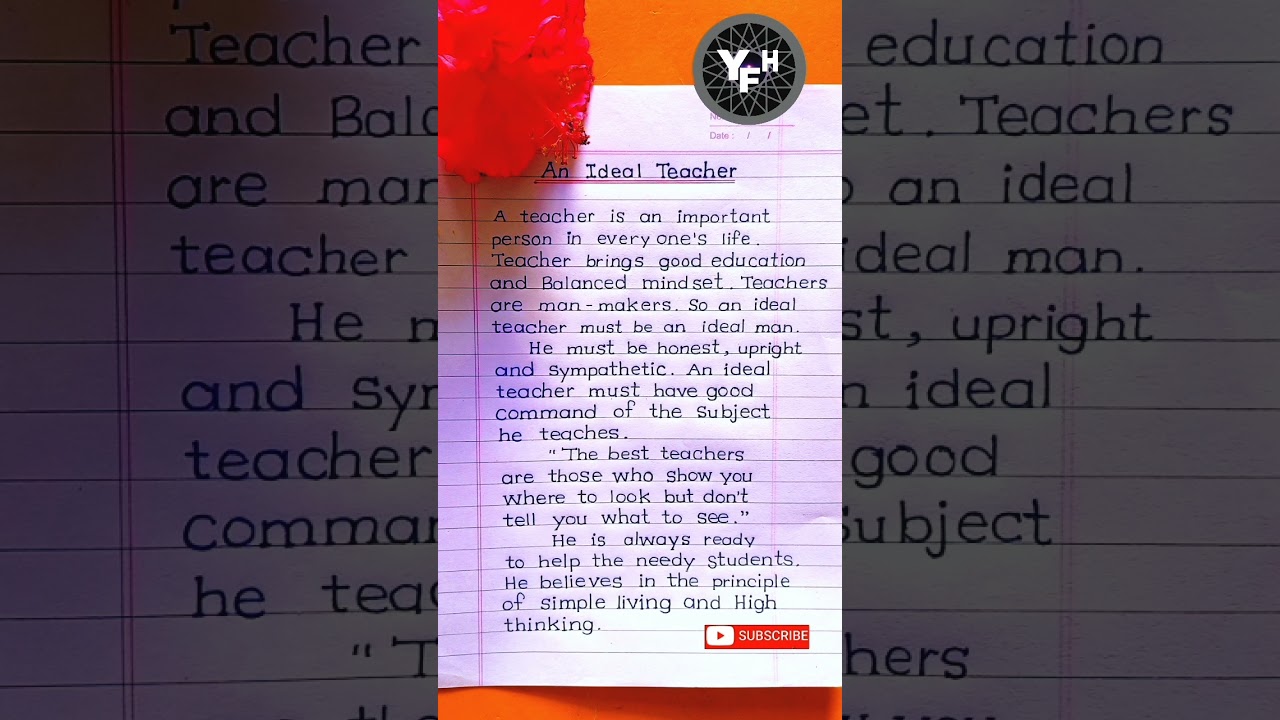 YFH
Date : / /
An Ideal Teacher
A teacher is an important
person in every one's life.
Teacher brings good education
and Balanced mindset. Teachers
are man-makers. So an ideal
teacher must be an ideal man.
He must be honest, upright
and sympathetic. An ideal
teacher must have good
command of the subject
he teaches.
"The best teachers
are those who show you
where to look but don't
tell you what to see."
He is always ready
to help the needy students.
He believes in the principle
of simple living and High
thinking.
SUBSCRIBE